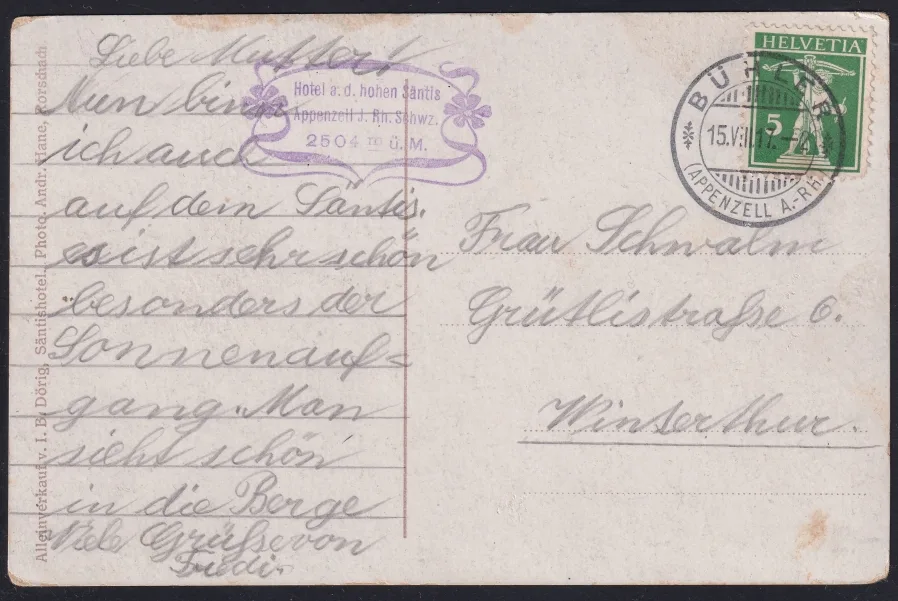 Liebe Mutter!
Nun binn
ich auch
auf dem Säntis.
es ist sehr schön
besonders der
Sonnenauf=
gang. Man
sieht schön
in die Berge
Viele Grüsse von
Fredi.
Hotel a. d. hohen Säntis
Appenzell J. Rh. Schwz.
2504 m ü. M.
HELVETIA
5
BÜHLER
(APPENZELL A.-RH.)
Frau Schwalm
Grütlistraße 6.
Winterthur.
Alleinverkauf v. I. B. Dörig, Säntishotel. Photo. Andr. Hane, Rorschach